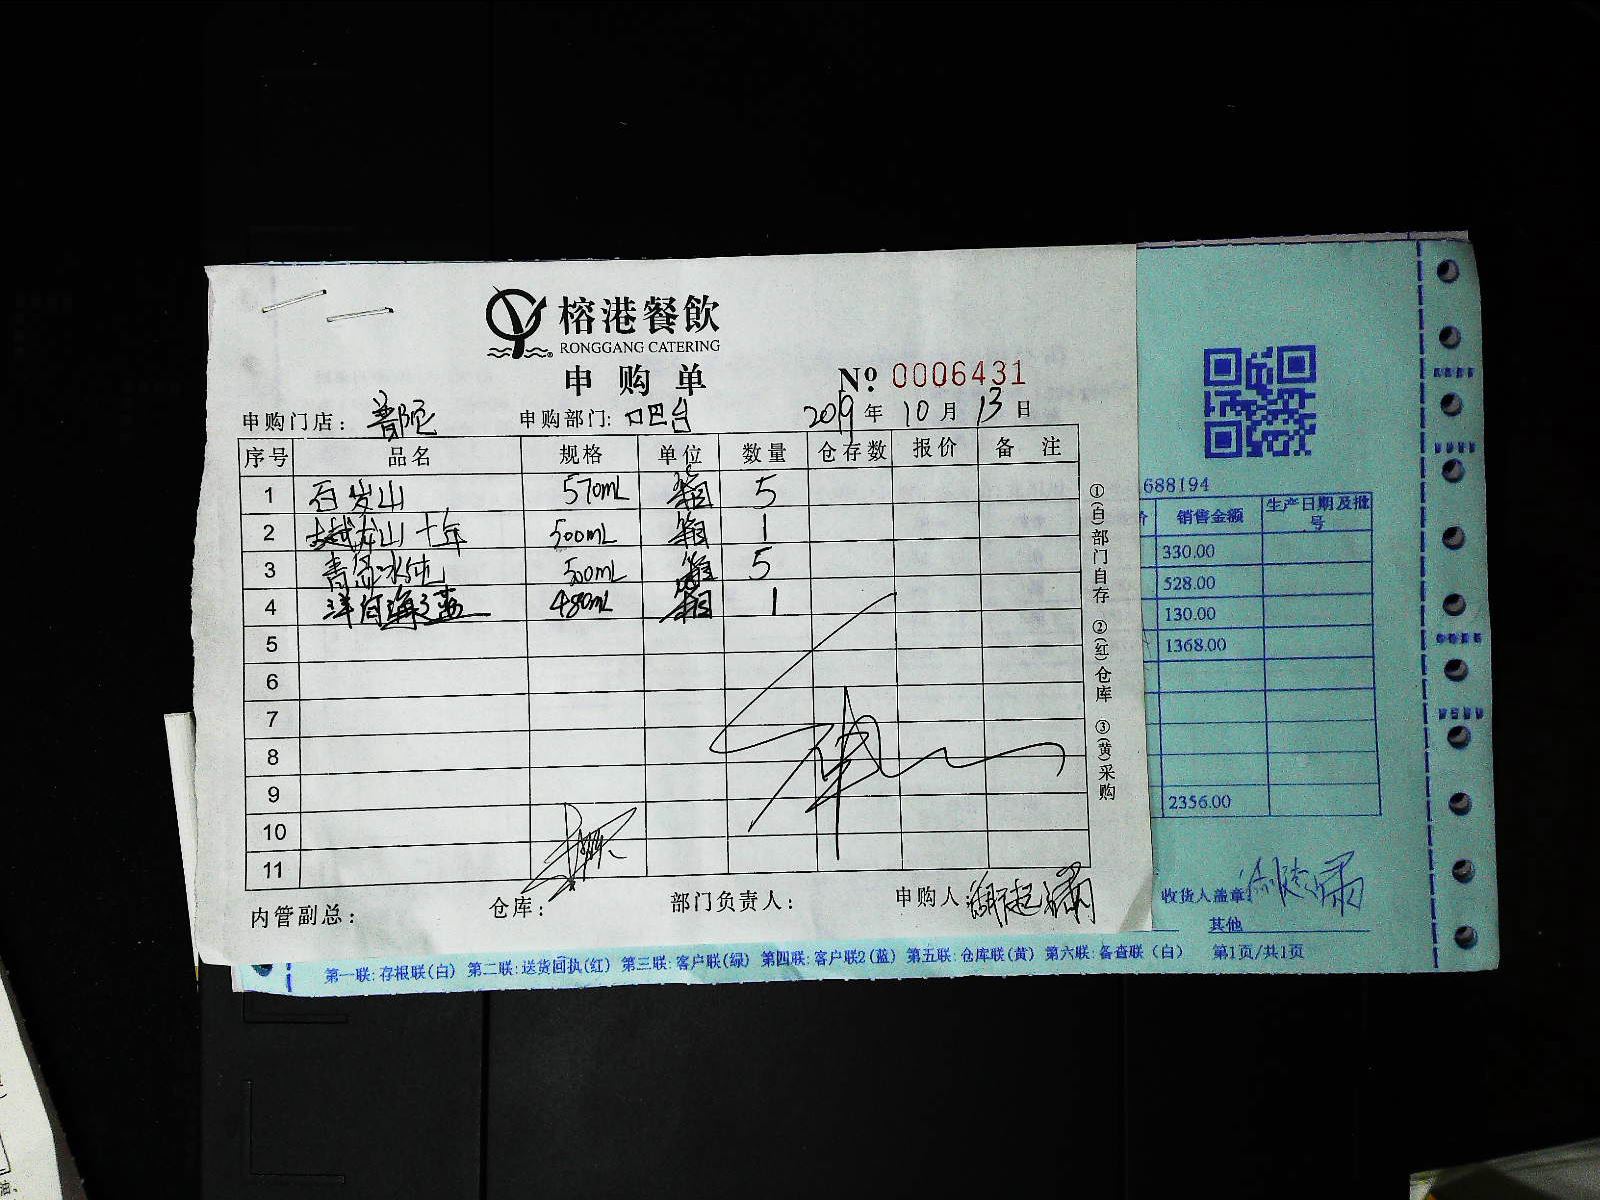 榕港餐飲
RONGGANG CATERING
申购单
№ 0006431
申购门店: 普陀 申购部门: 吧台 2019年10月13日
序号 品名 规格 单位 数量 仓存数 报价 备注
1 百岁山 570mL 箱 5
2 古越龙山十年 500mL 箱 1
3 青岛冰纯 500mL 箱 5
4 洋河海之蓝 480mL 箱 1
5
6
7
8
9
10
11
内管副总: 仓库: 部门负责人: 申购人:
①(白)部门自存 ②(红)仓库 ③(黄)采购
688194
销售金额 生产日期及批号
330.00
528.00
130.00
1368.00
2356.00
收货人盖章:
其他
第一联:存根联(白) 第二联:送货回执(红) 第三联:客户联(绿) 第四联:客户联2(蓝) 第五联:仓库联(黄) 第六联:备查联(白) 第1页/共1页